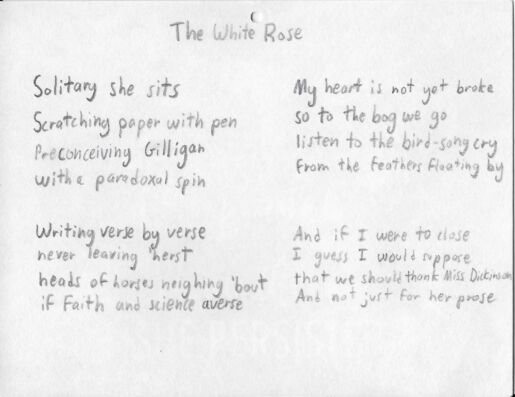 The White Rose
Solitary she sits
Scratching paper with pen
Preconceiving Gilligan
with a paradoxal spin
Writing verse by verse
never leaving 'herst
heads of horses neighing 'bout
if Faith and science averse
My heart is not yet broke
so to the bog we go
listen to the bird-song cry
From the feathers floating by
And if I were to close
I guess I would suppose
that we should thank Miss Dickinson
And not just for her prose